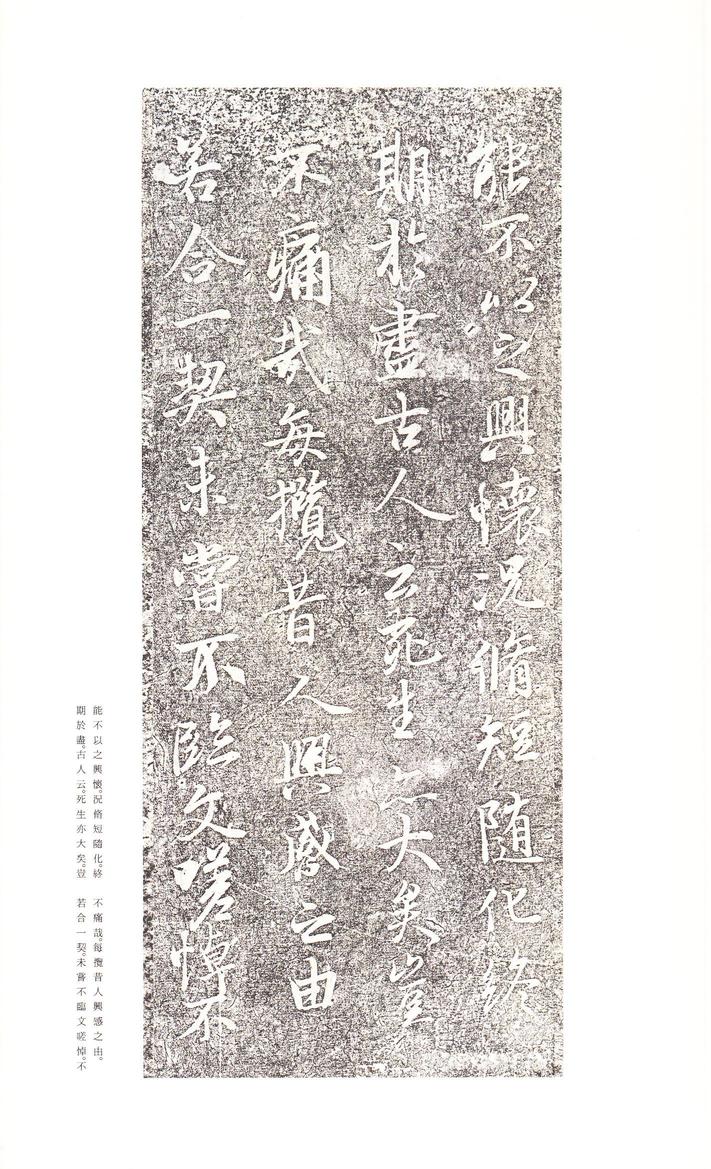 能不以之興懷況脩短隨化終
期於盡古人云死生亦大矣豈
不痛哉每攬昔人興感之由
若合一契未嘗不臨文嗟悼不
能不以之興懷。況脩短隨化。終
期於盡。古人云。死生亦大矣。豈
不痛哉。每攬昔人興感之由。
若合一契。未嘗不臨文嗟悼。不